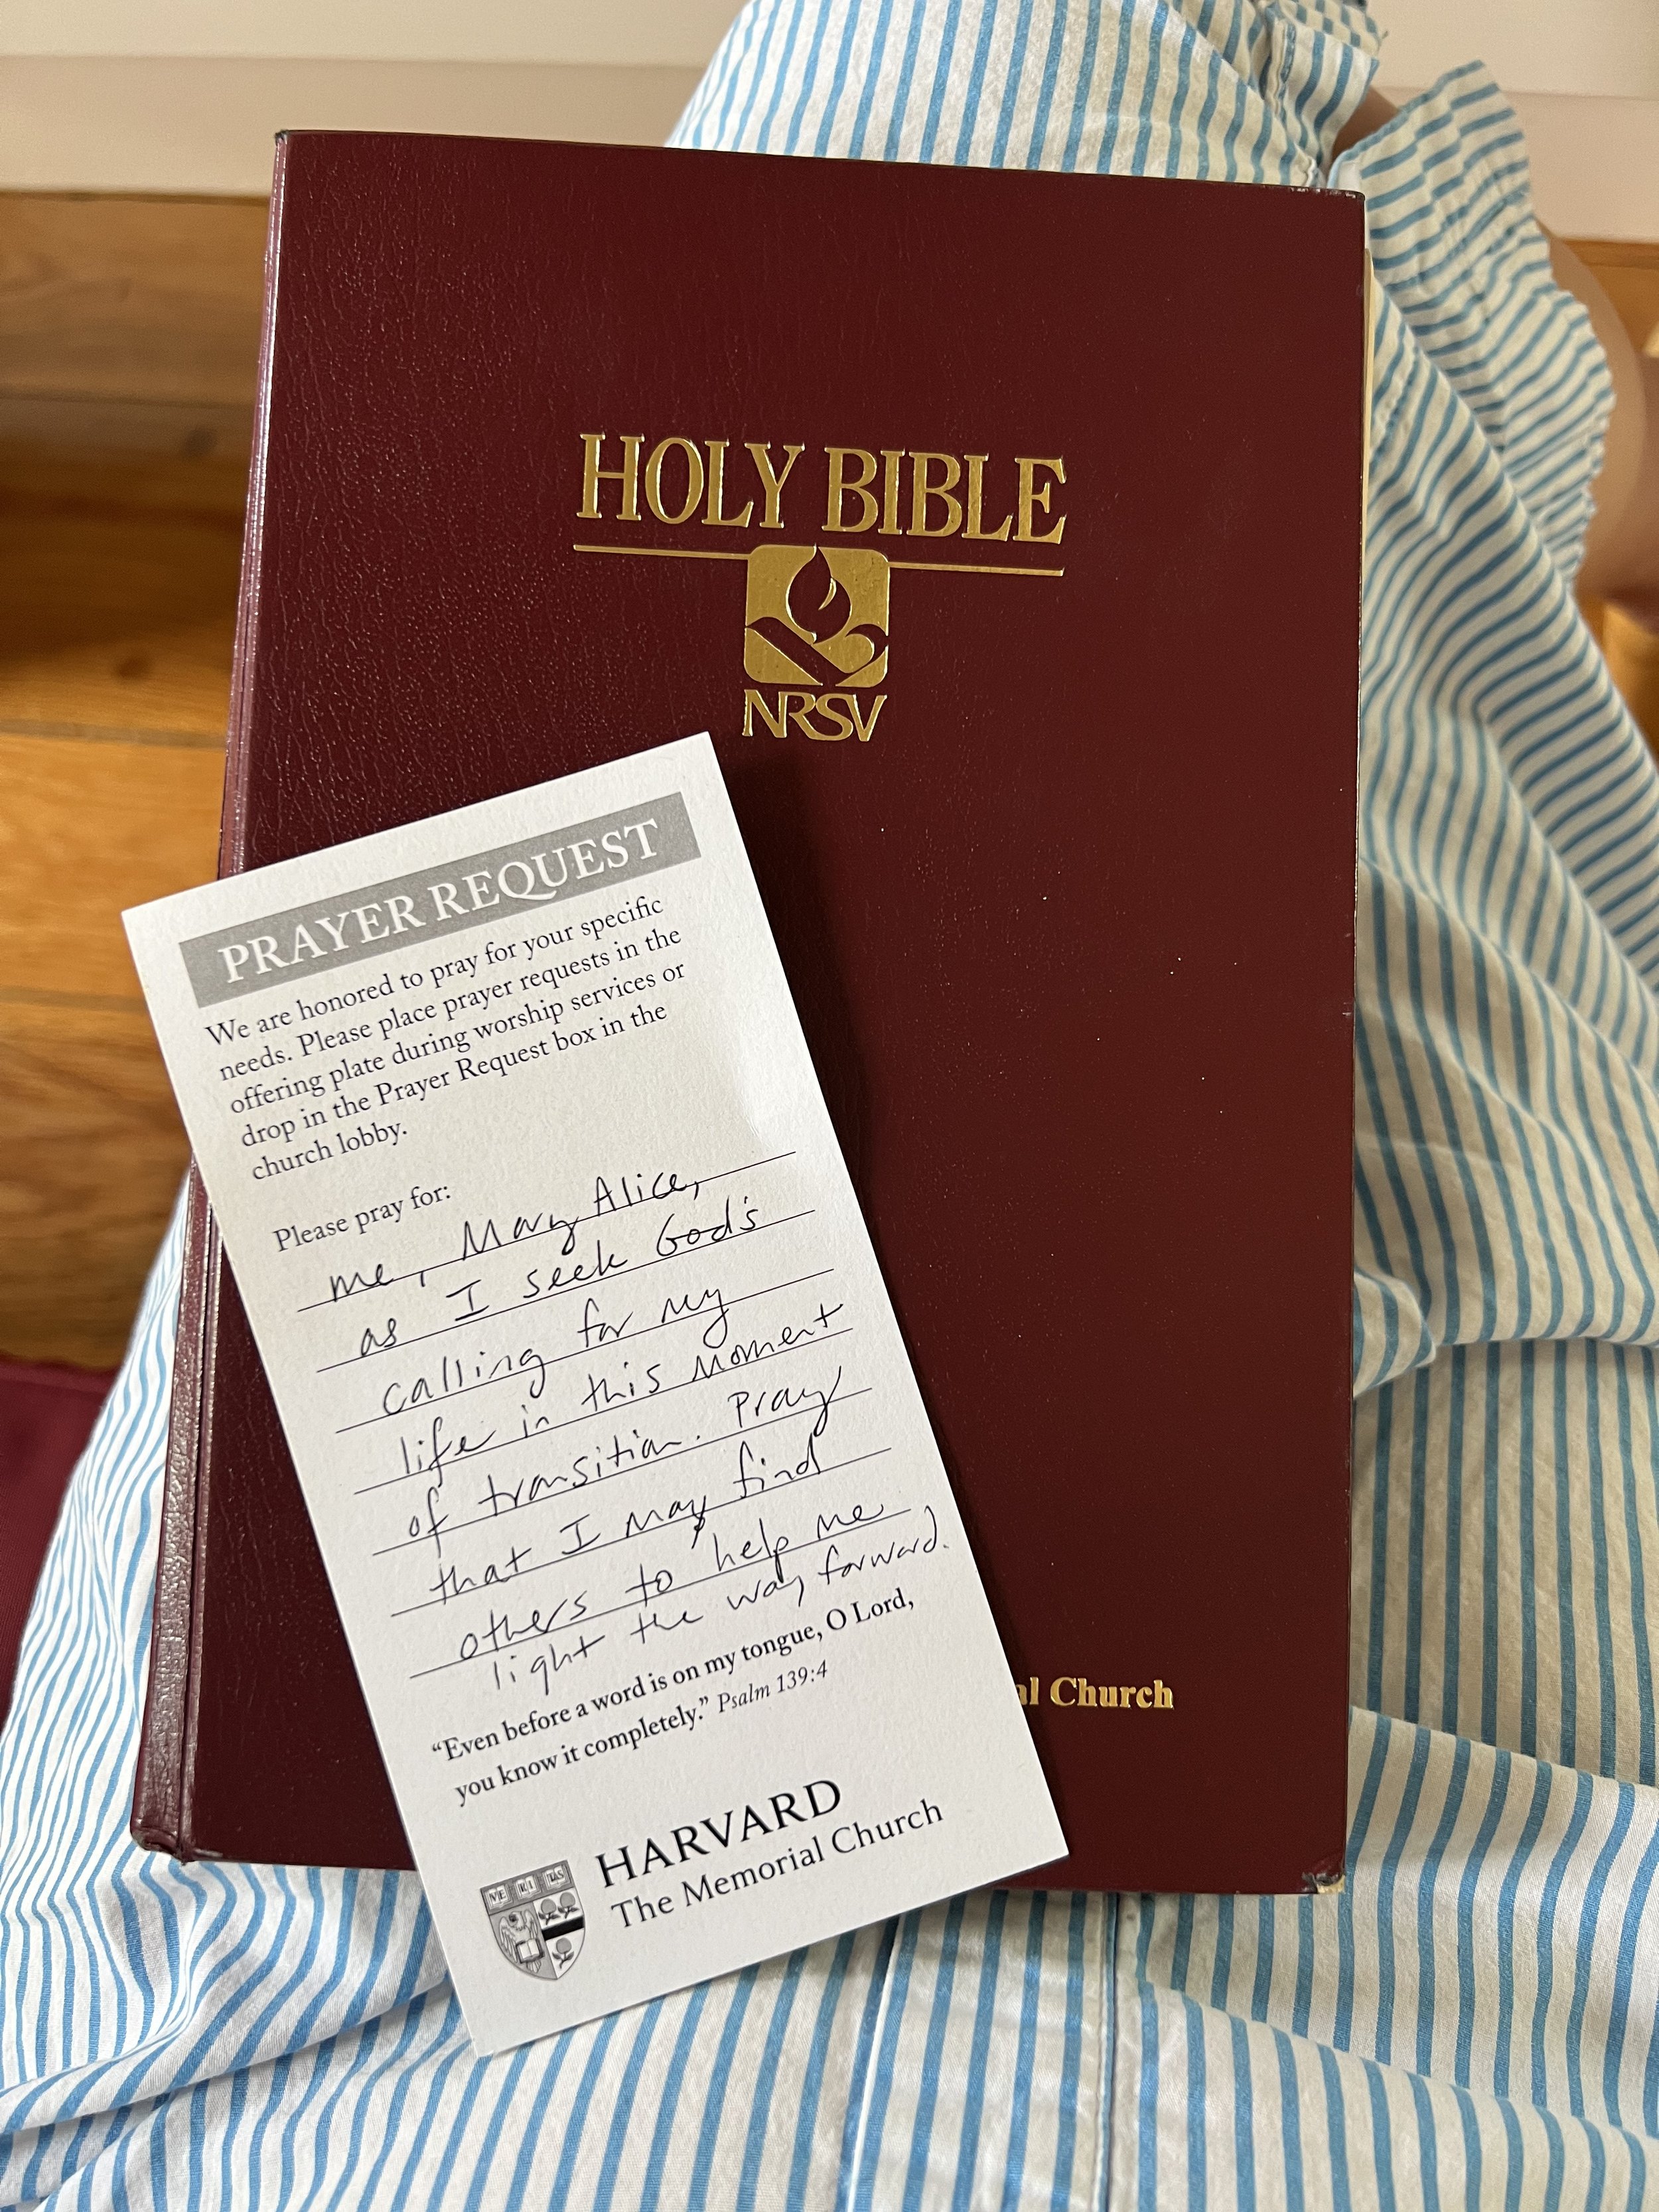 HOLY BIBLE
NRSV
PRAYER REQUEST
We are honored to pray for your specific
needs. Please place prayer requests in the
offering plate during worship services or
drop in the Prayer Request box in the
church lobby.
Please pray for:
me, Mary Alice,
as I seek God's
calling for my
life in this moment
of transition. Pray
that I may find
others to help me
light the way forward.
"Even before a word is on my tongue, O Lord,
you know it completely." Psalm 139:4
VE RI TAS
HARVARD
The Memorial Church
al Church